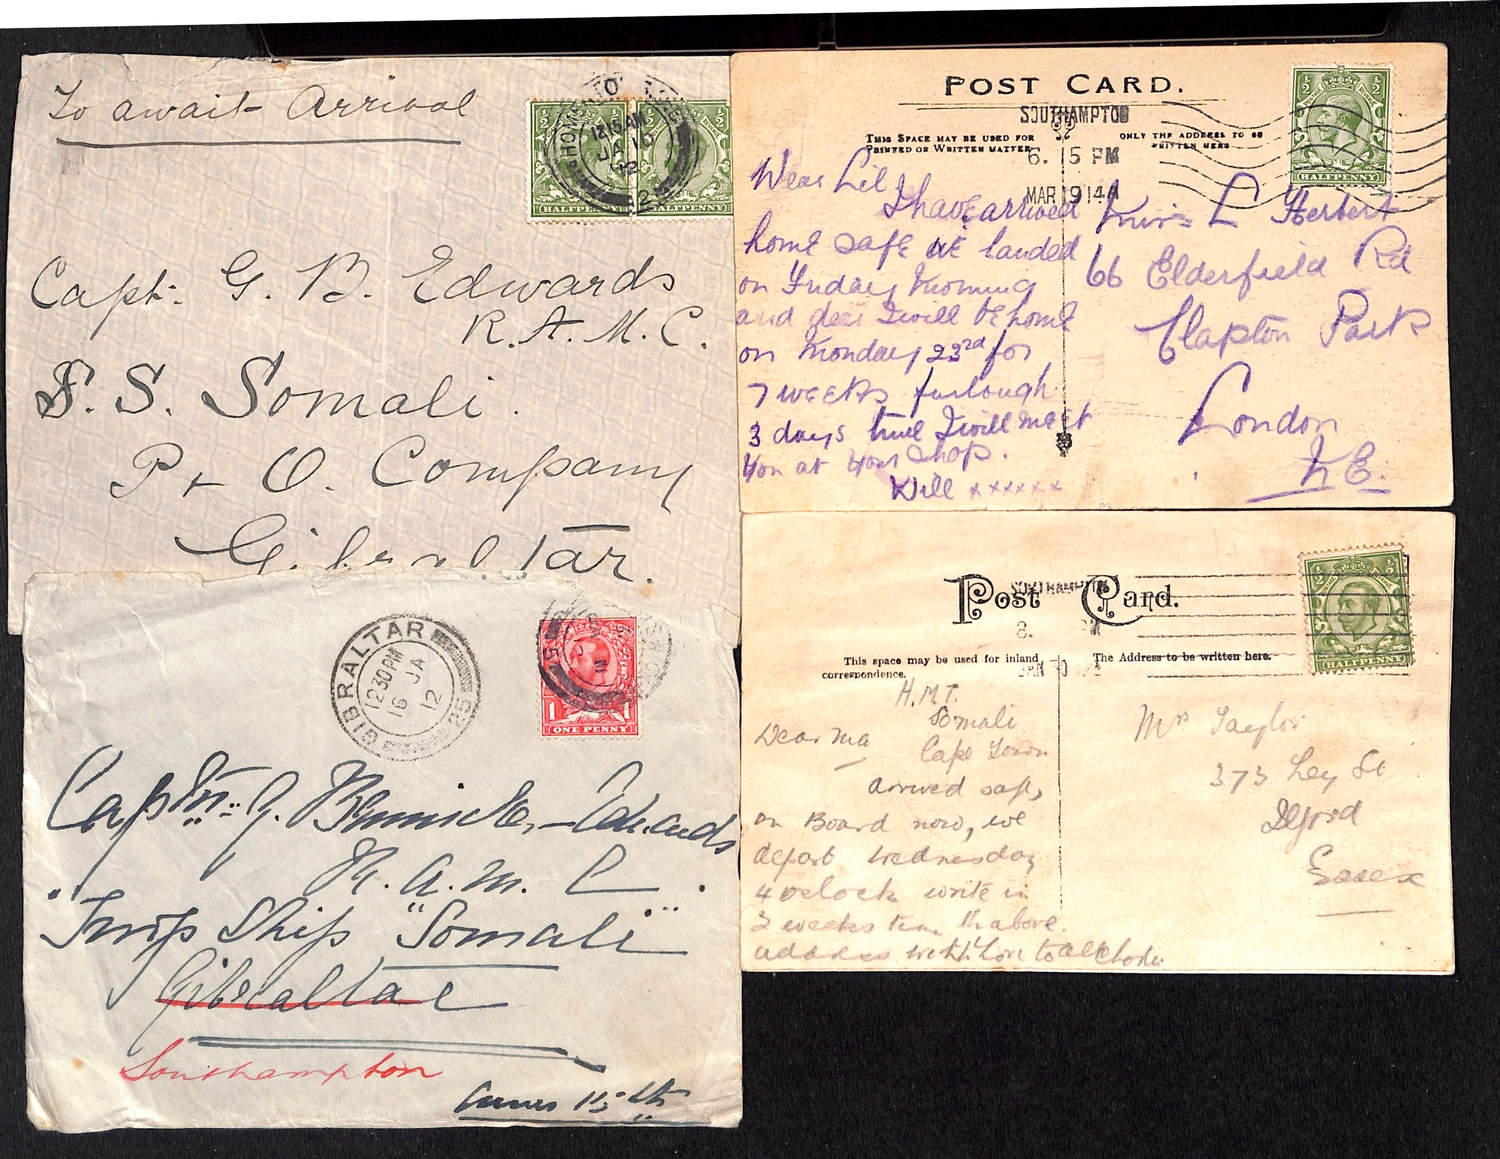 To await Arrival
12.15 AM
JA 10
12
HALFPENNY
HALFPENNY
Capt. G. B. Edwards
R.A.M.C.
S. S. Somali.
P & O. Company
Gibraltar.
GIBRALTAR
12 30 PM
16 JA
12
25
1
ONE PENNY
Captn. G.
R. A. M. C.
Troop Ship "Somali"
Gibraltar
Southampton
15th
POST CARD.
SOUTHAMPTON
THIS SPACE MAY BE USED FOR
PRINTED OR WRITTEN MATTER
ONLY THE ADDRESS TO BE
WRITTEN HERE
6. 15 PM
MAR 19 14
HALFPENNY
Dear Lil
I have arrived
home safe we landed
on Friday Morning
and dear I will be home
on Monday 23rd for
7 weeks furlough
3 days time I will meet
you at your shop.
Will xxxxxx
Miss L Herbert
66 Elderfield Rd
Clapton Park
London
N.E.
Post Card.
SOUTHAMPTON
8.
This space may be used for inland
correspondence.
The Address to be written here.
HALFPENNY
H.M.T.
Somali
Cape Town
Dear Ma
arrived safe,
on Board now, we
depart Wednesday
4 oclock write in
weeks time th above
address with love to all
Mrs Taylor
373 Ley St
Ilford
Essex